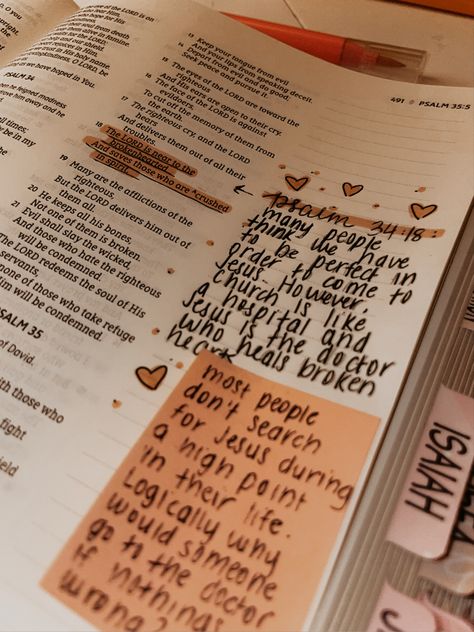 491 PSALM 35:3
13 Keep your tongue from evil
And your lips from speaking deceit.
Depart from evil and do good;
Seek peace and pursue it.
15 The eyes of the LORD are toward the
righteous
And His ears are open to their cry.
16 The face of the LORD is against
evildoers,
To cut off the memory of them from
the earth.
17 The righteous cry, and the LORD
hears
And delivers them out of all their
troubles.
18 The LORD is near to the
brokenhearted
And saves those who are crushed
in spirit.
19 Many are the afflictions of the
righteous,
But the LORD delivers him out of
them all.
20 He keeps all his bones,
Not one of them is broken.
21 Evil shall slay the wicked,
And those who hate the righteous
will be condemned.
The LORD redeems the soul of His
servants,
none of those who take refuge
Him will be condemned.
PSALM 35
of David.
with those who
fight
PSALM 34
psalm 34:18:
many people
think we have
to be perfect in
order to come to
Jesus. However,
church is like
a hospital and
Jesus is the doctor
who heals broken
hearts
most people
don't search
for Jesus during
a high point
in their life.
Logically why
would someone
go to the doctor
if nothings
wrong?
ISAIAH